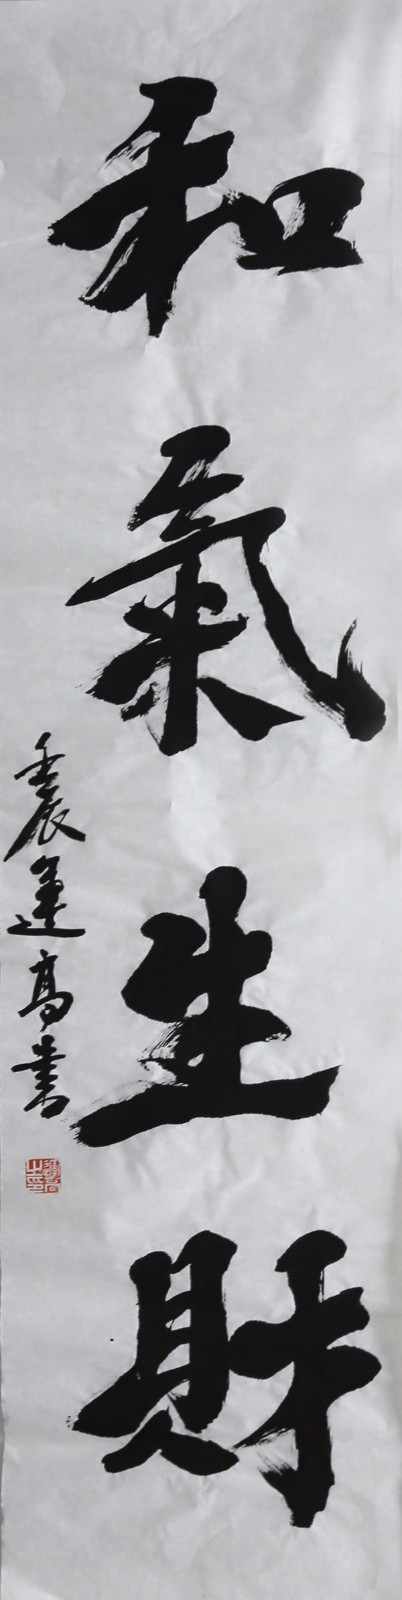 和氣生財
壬辰運高書